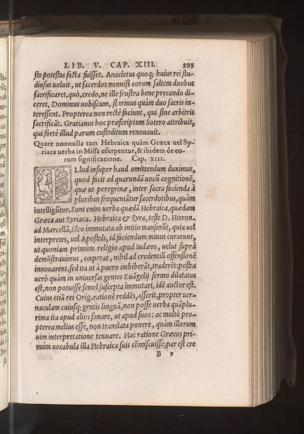 LIB. V. CAP. XIII. 393
sto potestas facta fuisset. Anacletus quoq; huius rei stu-
diosus uoluit, ut sacerdos nonnisi coram saltem duobus
sacrificaret, quò, credo, ne ille frustra bene precando di-
ceret, Dominus uobiscum, si minus quàm duo sacris in-
teressent. Propterea non rectè ficiunt, qui sine arbitris
sacrificāt. Gratianus hoc præscriptum Sotero attribuit,
qui fortè illud parum custoditum renouauit.
Quare nonnulla tum Hebraica quàm Græca uel Sy-
riaca uerba in Missa usurpentur, & ibidem de eo-
rum significatione. Cap. XIII.
Illud insuper haud omittendum duximus,
quod facit ad quarundā uocū cognitionē,
quæ ut peregrinæ, inter sacra facienda à
pluribus frequentātur sacerdotibus, quàm
intelligātur. Sunt enim uerba quædā Hebraica, quædam
Græca aut Syriaca. Hebraica & Syra, teste D. Hieron.
ad Marcellā, ideo immutata ab initio manserūt, quia uel
interpretes, uel Apostoli, id faciendum minus curarunt,
ut quoniam primum religio apud Iudæos, uelut suprà
demōstrauimus, cœp̄rat, nihil ad credentiū offensionē
innouarent, sed ea ut à puero imbiberāt, traderēt: postea
uerò quàm in uniuersas gentes Euāgelij sermo dilatatus
est, non potuisse semel suscepta immutari, idē auctor est.
Cuius etiā rei Orig. rationē reddēs, asserit, propter uer-
naculam cuiusq; gentis linguā, non posse uerba quæplu-
rima ita apud alios sonare, ut apud suos: ac multò pro-
pterea melius esse, non translata ponere, quàm illorum
uim interpretatione tenuare. Hac ratione Græcos pri-
mùm uocabula illa Hebraica suis cōmiscuisse, par est cre
B v